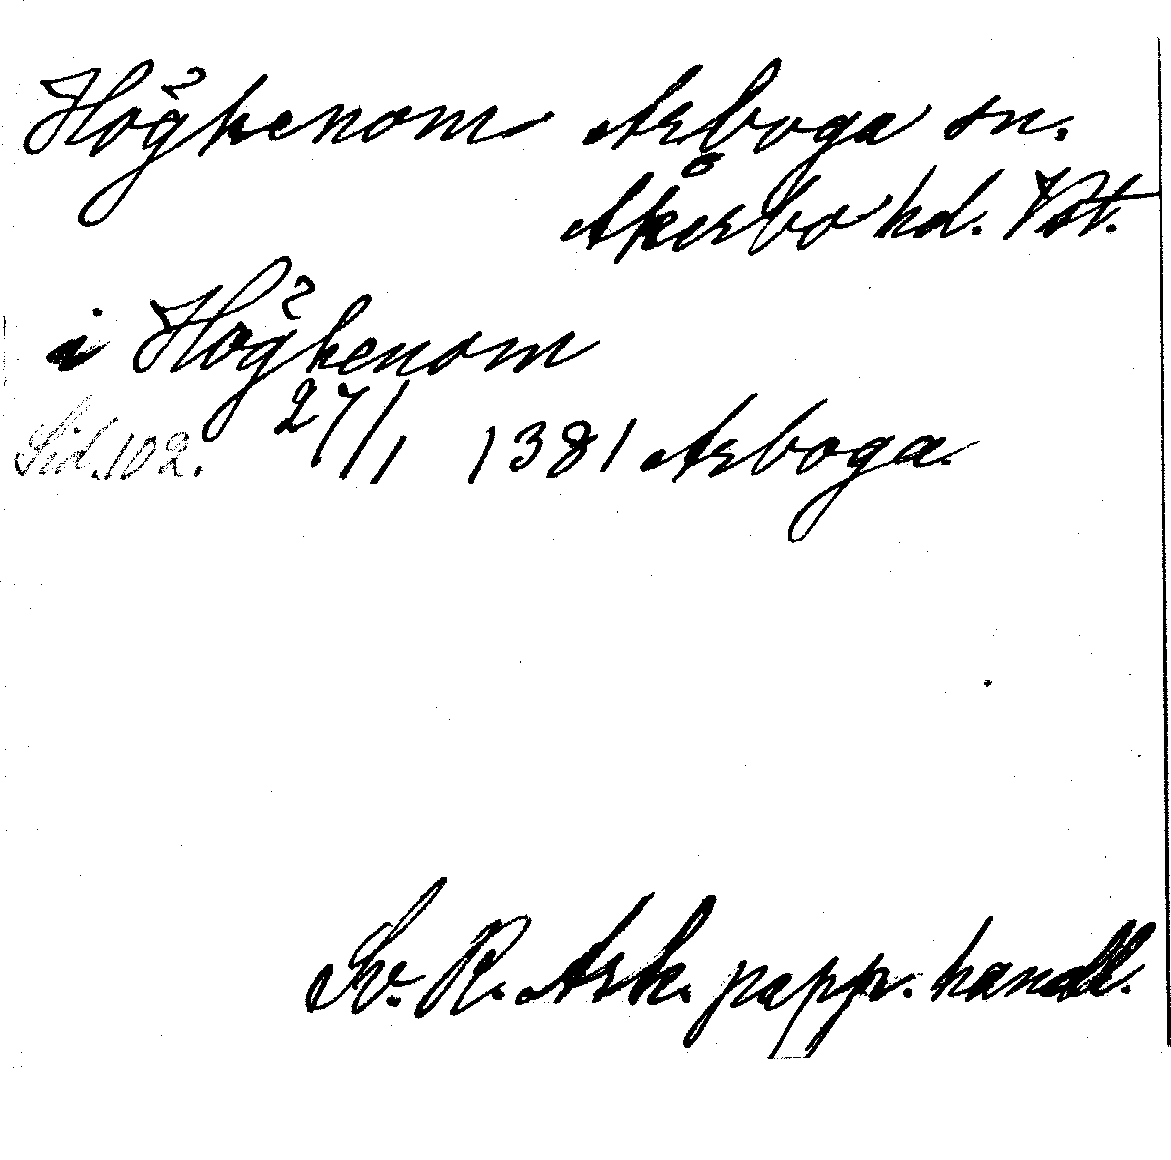 Högkenom Arboga sn.
Åkerbo hd. Vst.
i Högkenom
Sid. 102. 27/1 1381 Arboga.
Sv. R. Ark. papp. handl.